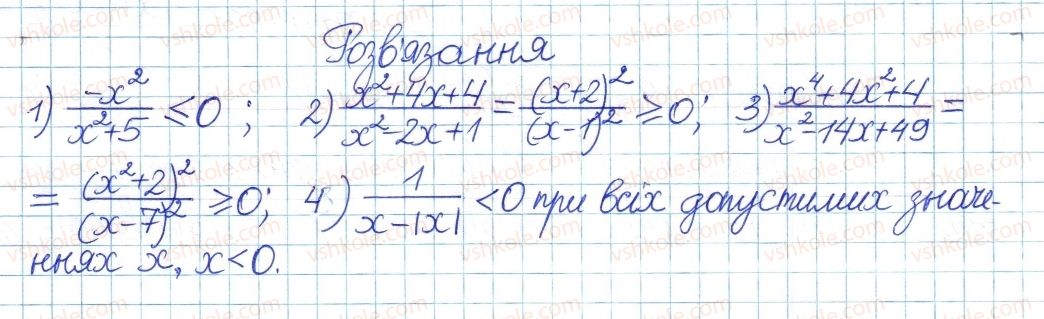 Розв'язання
1) \frac{-x^2}{x^2+5} ≤ 0; 2) \frac{x^2+4x+4}{x^2-2x+1} = \frac{(x+2)^2}{(x-1)^2} ≥ 0; 3) \frac{x^4+4x^2+4}{x^2-14x+49} =
= \frac{(x^2+2)^2}{(x-7)^2} ≥ 0; 4) \frac{1}{x-|x|} < 0 при всіх допустимих значе-
ннях x, x < 0.